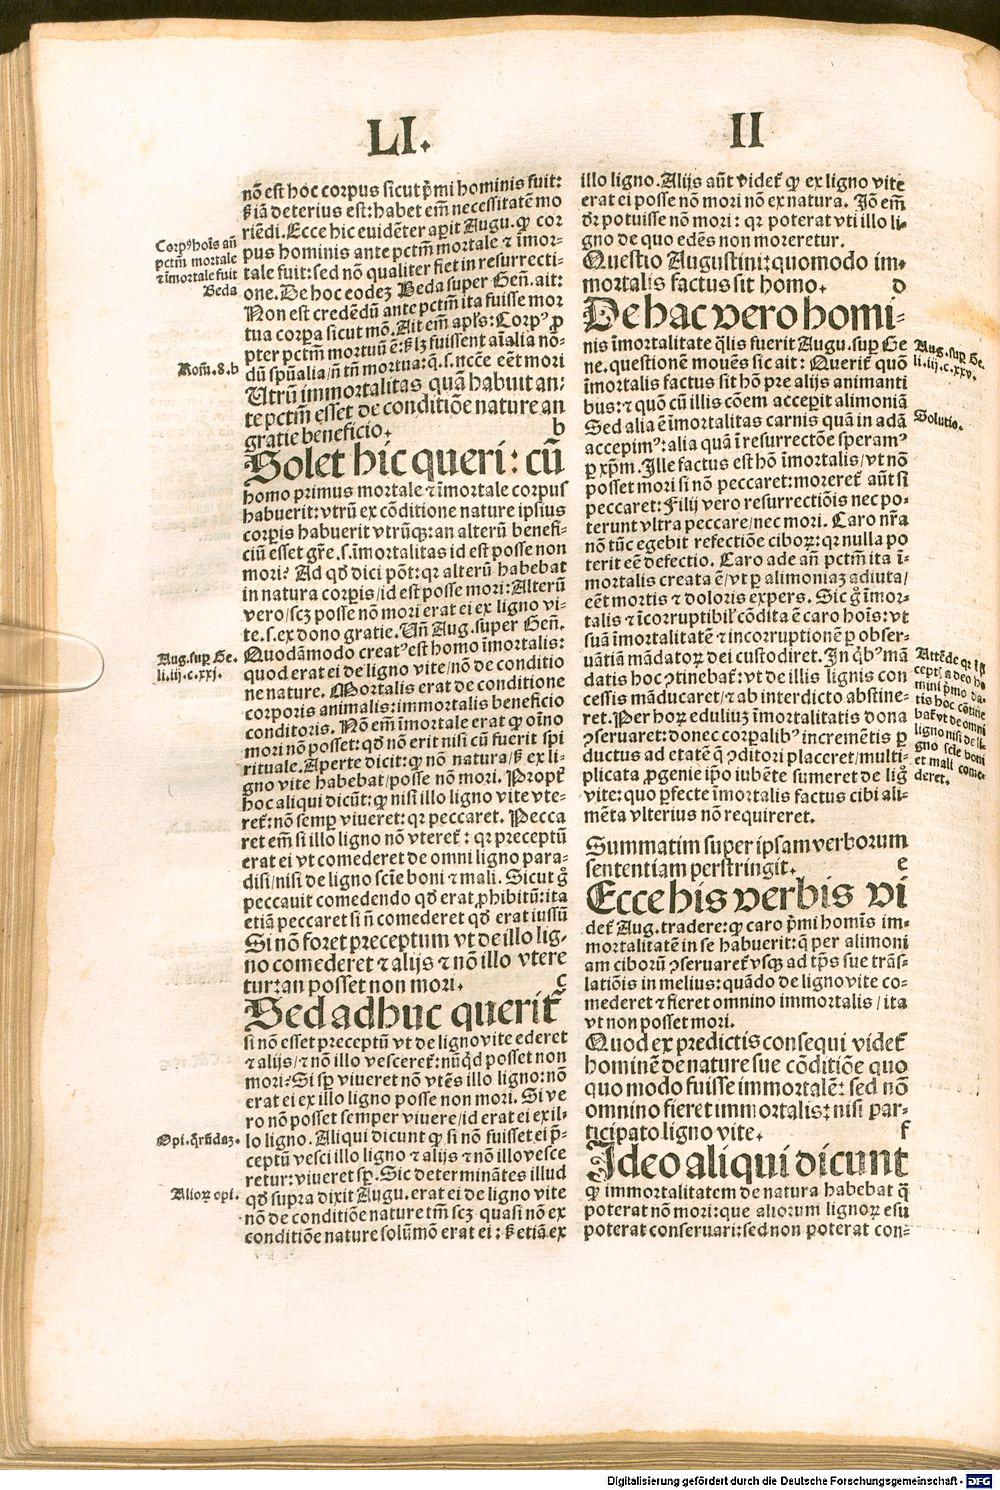 LI.
II
nõ est hoc corpus sicut p̃mi hominis fuit:
s̃ iã deterius est: habet em̃ necessitatẽ mo
riẽdi. Ecce hic euidẽter aperit Augu. ꝙ cor
pus hominis ante pctm̃ mortale ⁊ ĩmor-
tale fuit: sed nõ qualiter fiet in resurrecti-
one. De hoc eodeꝫ Beda super Geñ. ait:
Non est credẽdũ ante pctm̃ ita fuisse mor
tua corpa sicut mõ. Ait em̃ apl's: Corpꝰ ꝓ
pter pctm̃ mortuũ ẽ: s̃ lꝫ fuissent aĩalia nõ-
dũ spũalia/ ñ tñ mortua: q̃. s. ncc̃e eẽt mori
Utrũ immortalitas quã habuit an-
te pctm̃ esset de conditiõe nature an
gratie beneficio. b
Solet hic queri: cũ
homo primus mortale ⁊ ĩmortale corpus
habuerit: vtrũ ex cõditione nature ipsius
corpis habuerit vtrũqꝫ: an alterũ benefi-
ciũ esset gr̃e. s. ĩmortalitas id est posse non
mori? Ad qd̃ dici põt: qꝛ alterũ habebat
in natura corpis/ id est posse mori: Alterũ
vero/ scꝫ posse nõ mori erat ei ex ligno vi-
te. s. ex dono gratie. Uñ Aug. super Geñ.
Quodãmodo creatꝰ est homo ĩmortalis:
quod erat ei de ligno vite/ nõ de conditio
ne nature. Mortalis erat de conditione
corporis animalis: immortalis beneficio
conditoris. Nõ em̃ ĩmortale erat ꝙ oĩno
mori nõ posset: qd̃ nõ erit nisi cũ fuerit spi
rituale. Aperte dicit: ꝙ nõ natura/ s̃ ex li-
gno vite habebat/ posse nõ mori. Propt̃
hoc aliqui dicũt: ꝙ nisi illo ligno vite vte-
ret̃: nõ semꝑ viueret: qꝛ peccaret. Pecca
ret em̃ si illo ligno nõ vteret̃: qꝛ preceptũ
erat ei vt comederet de omni ligno para-
disi/ nisi de ligno scĩe boni ⁊ mali. Sicut g̃
peccauit comedendo qd̃ erat ꝓhibitũ: ita
etiã peccaret si ñ comederet qd̃ erat iussũ
Si nõ foret preceptum vt de illo lig-
no comederet ⁊ alijs ⁊ nõ illo vtere
tur: an posset non mori. c
Sed adhuc querit̃
si nõ esset preceptũ vt de ligno vite ederet
⁊ alijs/ ⁊ nõ illo vesceret̃: nũqd̃ posset non
mori? Si sꝑ viueret nõ vtẽs illo ligno: nõ
erat ei ex illo ligno posse non mori. Si ve
ro nõ posset semper viuere/ id erat ei ex il-
lo ligno. Aliqui dicunt ꝙ si nõ fuisset ei p̃-
ceptũ vesci illo ligno ⁊ alijs ⁊ nõ illo vesce
retur: viueret sꝑ. Sic determinãtes illud
qd̃ supra dixit Augu. erat ei de ligno vite
nõ de conditiõe nature tm̃ scꝫ quasi nõ ex
conditiõe nature solũmõ erat ei: s̃ etiã ex
Corpꝰ hoĩs añ
pctm̃ mortale
⁊ ĩmortale fuit
Beda
Rom̃. 8. b
Aug. sup Ge.
li. iij. c. xxj.
Opi.
Alioꝝ opi.
illo ligno. Alijs aũt videt̃ ꝙ ex ligno vite
erat ei posse nõ mori nõ ex natura. Iõ em̃
dr̃ potuisse nõ mori: qꝛ poterat vti illo li-
gno de quo edẽs non moreretur.
Questio Augustini: quomodo im-
mortalis factus sit homo. d
De hac vero homi-
nis ĩmortalitate q̃lis fuerit Augu. sup Ge
ne. questionẽ mouẽs sic ait: Querit̃ quõ
ĩmortalis factus sit hõ pre alijs animanti
bus: ⁊ quõ cũ illis cõem accepit alimoniã
Sed alia ẽ ĩmortalitas carnis quã in adã
accepimꝰ: alia quã ĩ resurrectõe speramꝰ
ꝑ xp̃m. Ille factus est hõ ĩmortalis/ vt nõ
posset mori si nõ peccaret: moreret̃ aũt si
peccaret: Filij vero resurrectiõis nec po-
terunt vltra peccare/ nec mori. Caro nr̃a
nõ tũc egebit refectiõe ciboꝝ: qꝛ nulla po
terit eẽ defectio. Caro ade añ pctm̃ ita ĩ-
mortalis creata ẽ/ vt ꝑ alimoniaꝫ adiuta/
eẽt mortis ⁊ doloris expers. Sic g̃ ĩmor-
talis ⁊ ĩcorruptibil' cõdita ẽ caro hoĩs: vt
suã ĩmortalitatẽ ⁊ incorruptionẽ ꝑ obser-
uãtiã mãdatoꝝ dei custodiret. In q̃bꝰ mã
datis hoc ꝯtinebat̃: vt de illis lignis con
cessis mãducaret/ ⁊ ab interdicto abstine-
ret. Per hoꝝ eduliuꝫ ĩmortalitatis dona
ꝯseruaret: donec corpalibꝰ incremẽtis ꝑ
ductus ad etatẽ q̃ ꝯditori placeret/ multi-
plicata ꝓgenie ip̃o iubẽte sumeret de lig̃
vite: quo ꝑfecte ĩmortalis factus cibi ali-
mẽta vlterius nõ requireret.
Summatim super ipsam verborum
sententiam perstringit. e
Ecce his verbis vi
det̃ Aug. tradere: ꝙ caro p̃mi homĩs im-
mortalitatẽ in se habuerit: q̃ per alimoni
am ciborũ ꝯseruaret̃ vsqꝫ ad tp̃s sue trãs-
latiõis in melius: quãdo de ligno vite co-
mederet ⁊ fieret omnino immortalis/ ita
vt non posset mori.
Quod ex predictis consequi videt̃
hominẽ de nature sue cõditiõe quo
quo modo fuisse immortalẽ: sed nõ
omnino fieret immortalis: nisi par-
ticipato ligno vite. f
Ideo aliqui dicunt
ꝙ immortalitatem de natura habebat q̃
poterat nõ mori: que aliorum lignoꝝ esu
poterat conseruari: sed non poterat con-
Aug. sup Ge.
li. iij. c. xxv.
Solutio.
Attẽde qꝛ
cept̃ adeo ho
mini p̃mo da-
tis hoc cõtine
bat̃ vt de omni
ligno nisi de li-
gno scĩe boni
et mali come-
deret.
Digitalisierung gefördert durch die Deutsche Forschungsgemeinschaft - DFG